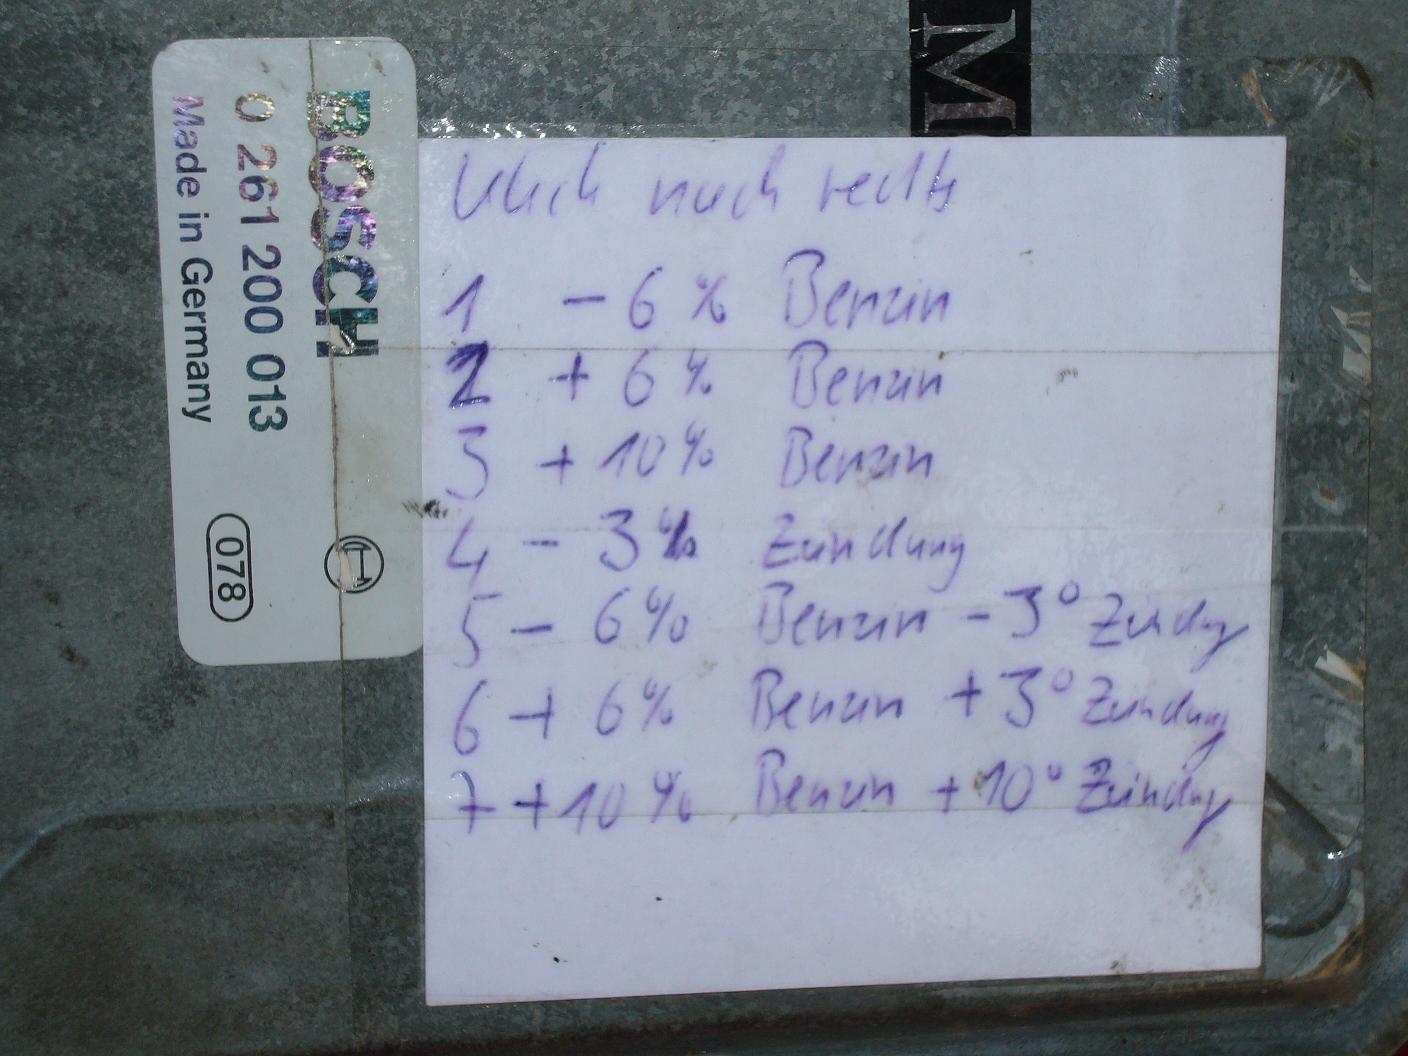 BOSCH
0 261 200 013
Made in Germany
078
M
Klick nach rechts
1 - 6 % Benzin
2 + 6 % Benzin
3 + 10 % Benzin
4 - 3 % Zündung
5 - 6 % Benzin - 3° Zündung
6 + 6 % Benzin + 3° Zündung
7 + 10 % Benzin + 10° Zündung